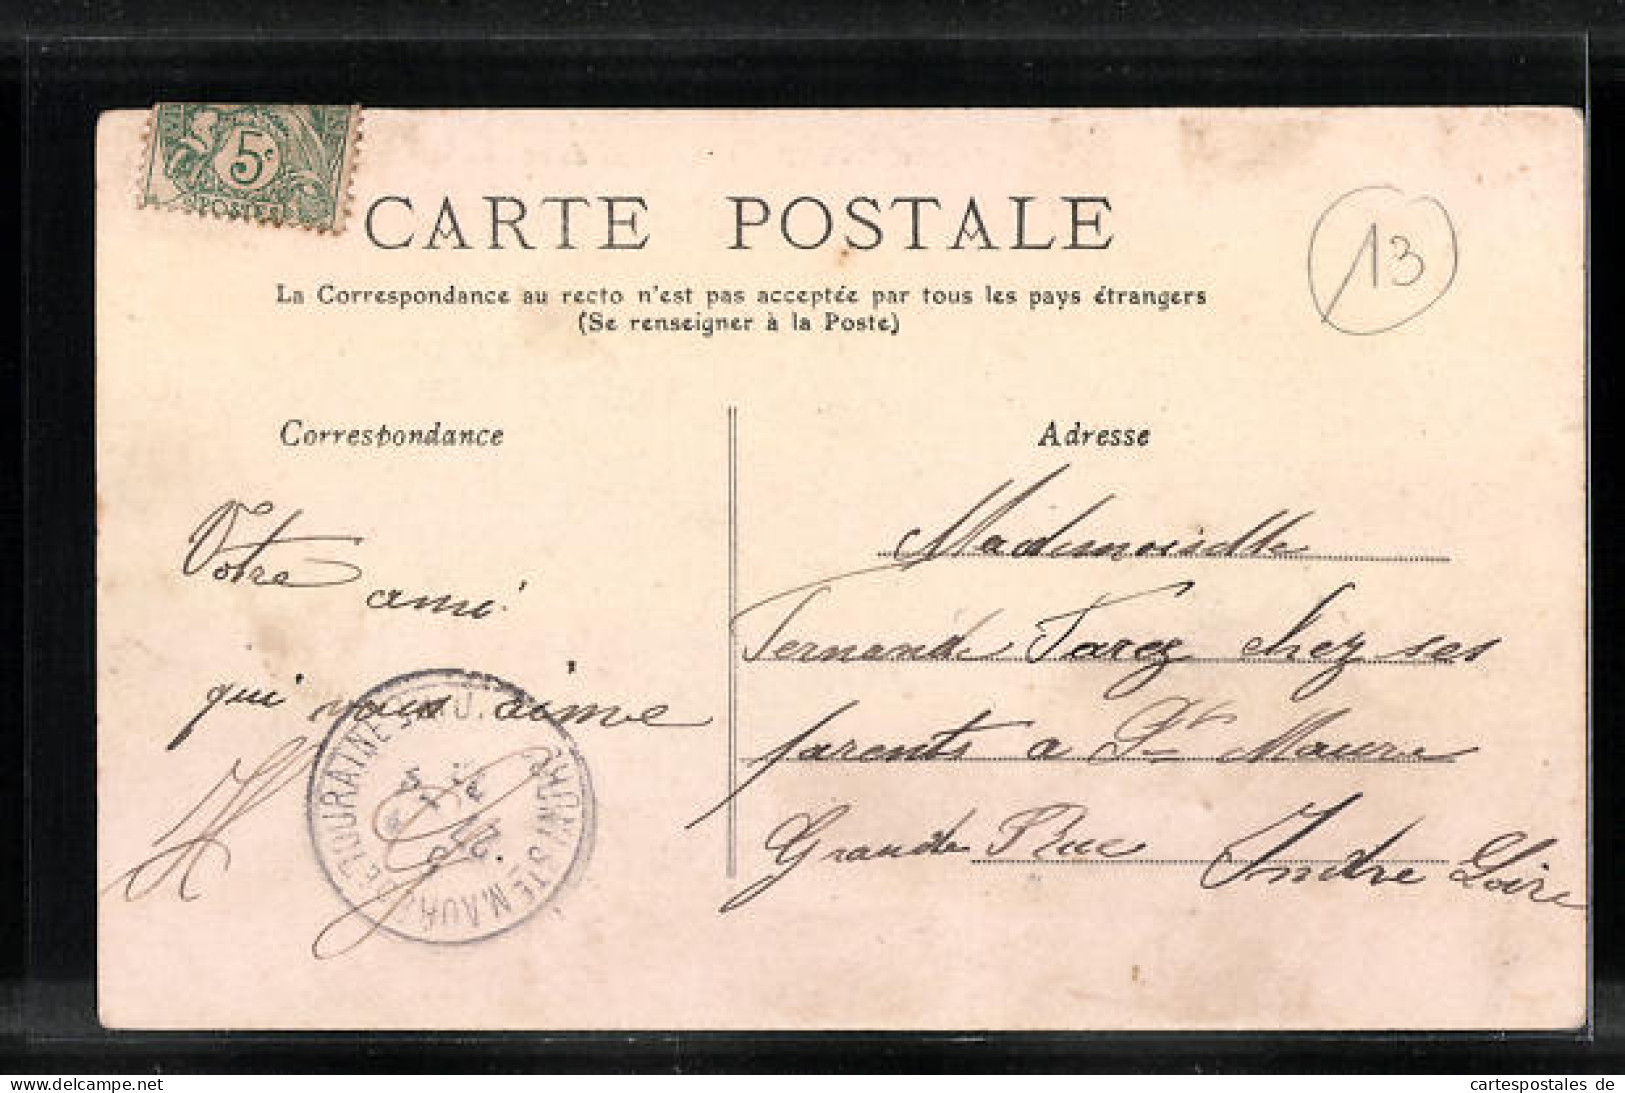 5c
POSTES
CARTE POSTALE
La Correspondance au recto n'est pas acceptée par tous les pays étrangers
(Se renseigner à la Poste)
13
Correspondance
Votre ami
qui vous aime
H
Adresse
Mademoiselle
Fernande Tarez chez ses
parents a Ste Maure
Grande Rue Indre Loire
STE MAURE DE TOURAINE
Delcampe.net
cartespostales de